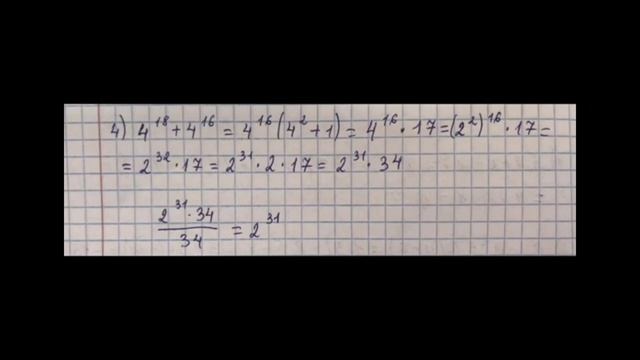 4) 4¹⁸ + 4¹⁶ = 4¹⁶(4² + 1) = 4¹⁶ · 17 = (2²)¹⁶ · 17 =
= 2³² · 17 = 2³¹ · 2 · 17 = 2³¹ · 34
2³¹ · 34
34
= 2³¹